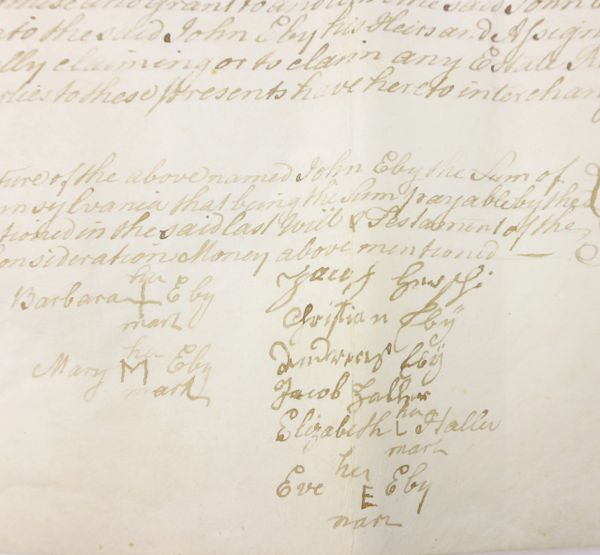 to the said John Eby his Heirs and Assign
lly claiming or to claim any Estate R
rties to these presents have hereto interchan
ture of the above named John Eby the Sum of
nnsylvania that being the Sum payable by the
tioned in the said last Will & Testament of the
onsideration Money above mentioned —
Barbara her Eby
mark
Mary her M Eby
mark
Jacob Herschi
Christian Ebÿ
Andreas Ebÿ
Jacob Haller
Elizabeth her Haller
mark
Eve her E Eby
mark